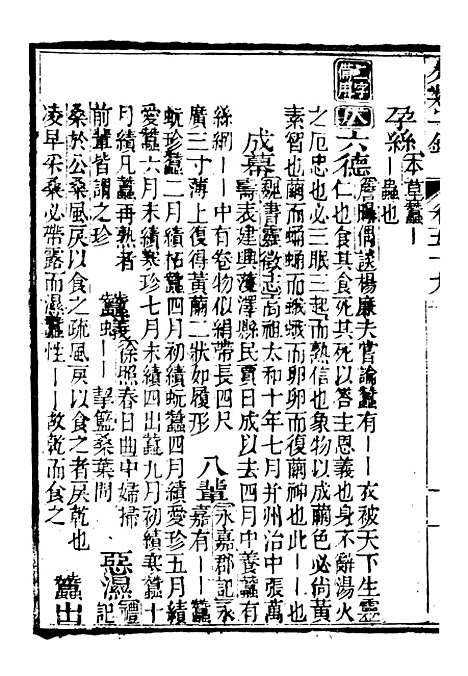 孕絲本草蠶一一蟲也
二字備用 六德詹暉偶談楊廉夫嘗論蠶有一一衣被天下生靈仁也食其食死其死以答主恩義也身不辭湯火
之厄忠也必三眠三起而熟信也象物以成繭色必尚黃
素智也繭而蛹蛹而蛾蛾而卵卵而復繭神也此一一也
成幕魏書靈徵志高祖太和十年七月并州治中張萬壽表建興濩澤縣民賈日成以去四月中養蠶有
絲網一一中有卷物似絹帶長四尺
廣三寸薄上復得黃繭二狀如履形 八輩永嘉郡記永嘉有一一蠶
蚖珍蠶三月績柘蠶四月初績蚖蠶四月績愛珍五月績
愛蠶六月末績寒珍七月末績四出蠶九月績寒蠶十
月績凡蠶再熟者前輩皆謂之珍 蠶蟻徐照春日曲中婦掃蠶蟻一一挈籃桑葉間 惡濕禮記
桑於公桑風戾以食之疏風戾以食之者戾乾也
凌早采桑必帶露而濕蠶性一一故乾而食之 蠶出